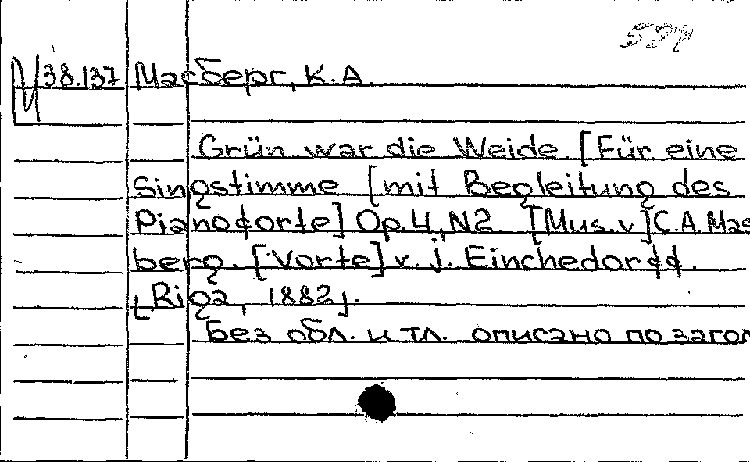 594
М 38.137 Масберг, К. А.
Grün war die Weide. [Für eine
Singstimme [mit Begleitung des
Pianoforte] Op. 4, N2 [Mus. v.] C. A. Mas
berg. [Vorte] v. J. Einchedorff.
[Riga, 1882].
Без обл. и тл. описано по загол